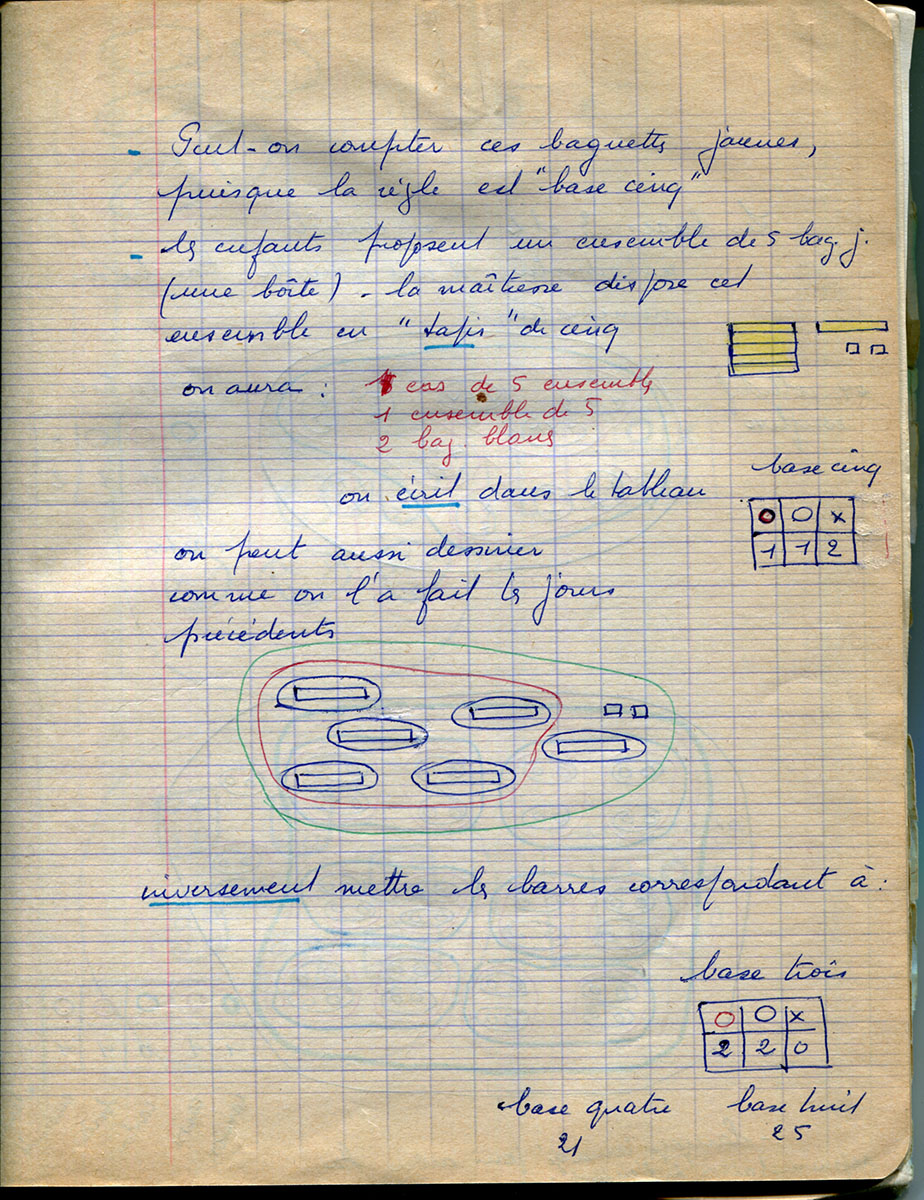 - Peut-on compter ces baguettes jaunes,
puisque la règle est "base cinq"
- les enfants proposent un ensemble de 5 bag. j.
(une boîte) - la maîtresse dispose cet
ensemble en "tapis" de cinq
on aura : 1 cas de 5 ensembles
1 ensemble de 5
2 bag. blancs
base cinq
on écrit dans le tableau
O O x
1 1 2
on peut aussi dessiner
comme on l'a fait les jours
précédents
inversement mettre les barres correspondant à :
base trois
O O x
2 2 0
base quatre base huit
21 25